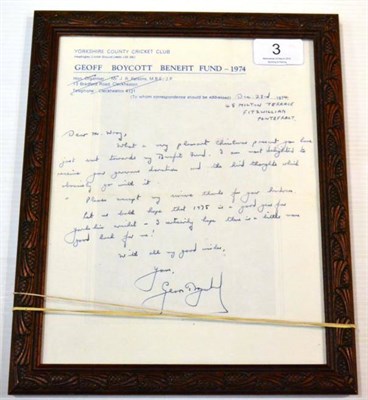 3
YORKSHIRE COUNTY CRICKET CLUB
GEOFF BOYCOTT BENEFIT FUND – 1974
(To whom correspondence should be addressed)
Dec 23rd 1974
45 MILTON TERRACE
FITZWILLIAM
PONTEFRACT.
Dear Mr Wray,
What a very pleasant Christmas present you have
just sent towards my Benefit Fund. I am most delighted to
receive your generous donation and the kind thoughts which
obviously go with it.
Please accept my sincere thanks for your kindness
Let us both hope that 1975 is a good year for
Yorkshire cricket – I certainly hope there is a little more
good luck for me!
With all my good wishes.
Yours,
Geoff Boycott